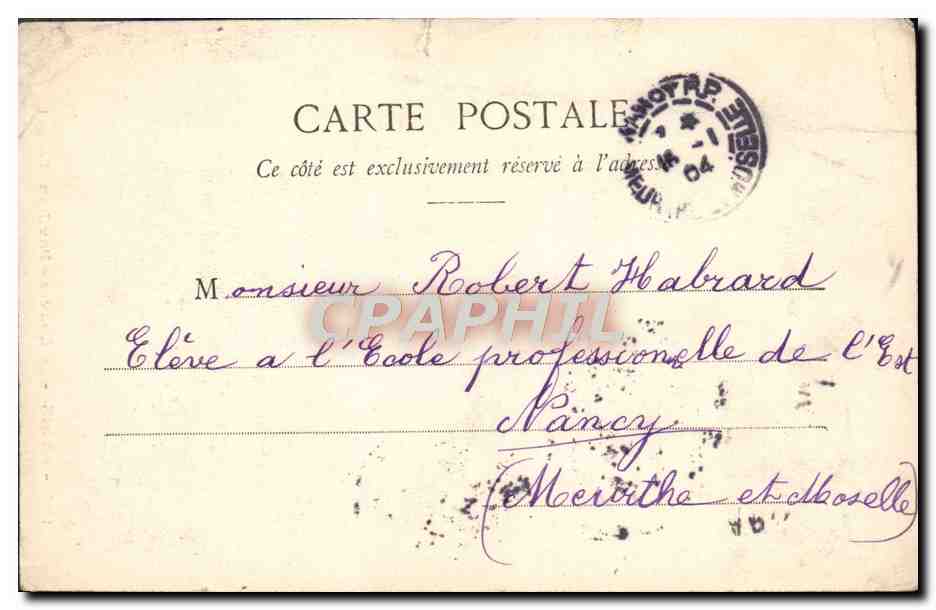 CARTE POSTALE
Ce côté est exclusivement réservé à l'adresse
NANCY R.P.
1
04
Monsieur Robert Habrard
Elève a l'Ecole professionelle de l'Est
Nancy
(Meurthe et Moselle)
CPAPHIL